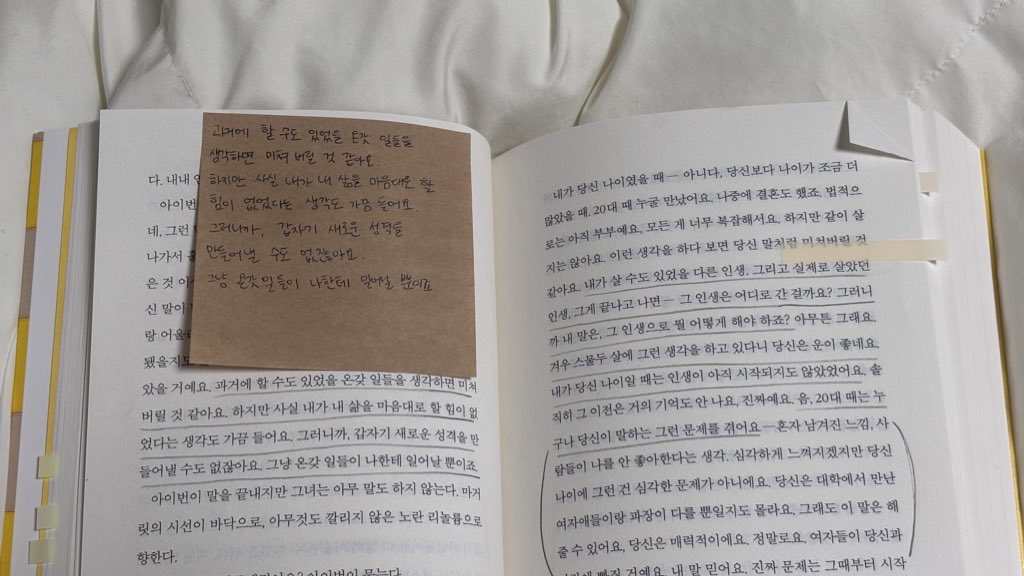 과거에 할 수도 있었을 온갖 일들을
생각하면 미쳐 버릴 것 같아요.
하지만 사실 내가 내 삶을 마음대로 할
힘이 없었다는 생각도 가끔 들어요.
그러니까, 갑자기 새로운 성격을
만들어낼 수도 없잖아요.
그냥 온갖 일들이 나한테 일어날 뿐이죠
다. 내내
아이번
네, 그런
나가서
은 것 이
신 말이
랑 어울
됐을지도
았을 거예요. 과거에 할 수도 있었을 온갖 일들을 생각하면 미쳐
버릴 것 같아요. 하지만 사실 내가 내 삶을 마음대로 할 힘이 없
었다는 생각도 가끔 들어요. 그러니까, 갑자기 새로운 성격을 만
들어낼 수도 없잖아요. 그냥 온갖 일들이 나한테 일어날 뿐이죠.
아이번이 말을 끝내지만 그녀는 아무 말도 하지 않는다. 마거
릿의 시선이 바닥으로, 아무것도 깔리지 않은 노란 리놀륨으로
향한다.
아이번이 묻는다.
내가 당신 나이였을 때— 아니다, 당신보다 나이가 조금 더
많았을 때, 20대 때 누굴 만났어요. 나중에 결혼도 했죠. 법적으
로는 아직 부부예요. 모든 게 너무 복잡해서요. 하지만 같이 살
지는 않아요. 이런 생각을 하다 보면 당신 말처럼 미쳐버릴 것
같아요. 내가 살 수도 있었을 다른 인생. 그리고 실제로 살았던
인생. 그게 끝나고 나면— 그 인생은 어디로 간 걸까요? 그러니
까 내 말은, 그 인생으로 뭘 어떻게 해야 하죠? 아무튼 그래요.
겨우 스물두 살에 그런 생각을 하고 있다니 당신은 운이 좋네요.
내가 당신 나이일 때는 인생이 아직 시작되지도 않았었어요. 솔
직히 그 이전은 거의 기억도 안 나요. 진짜예요. 음, 20대 때는 누
구나 당신이 말하는 그런 문제를 겪어요—혼자 남겨진 느낌, 사
람들이 나를 안 좋아한다는 생각. 심각하게 느껴지겠지만 당신
나이에 그런 건 심각한 문제가 아니에요. 당신은 대학에서 만난
여자애들이랑 파장이 다를 뿐일지도 몰라요. 그래도 이 말은 해
줄 수 있어요, 당신은 매력적이에요. 정말로요. 여자들이 당신과
빠질 거예요. 내 말 믿어요. 진짜 문제는 그때부터 시작